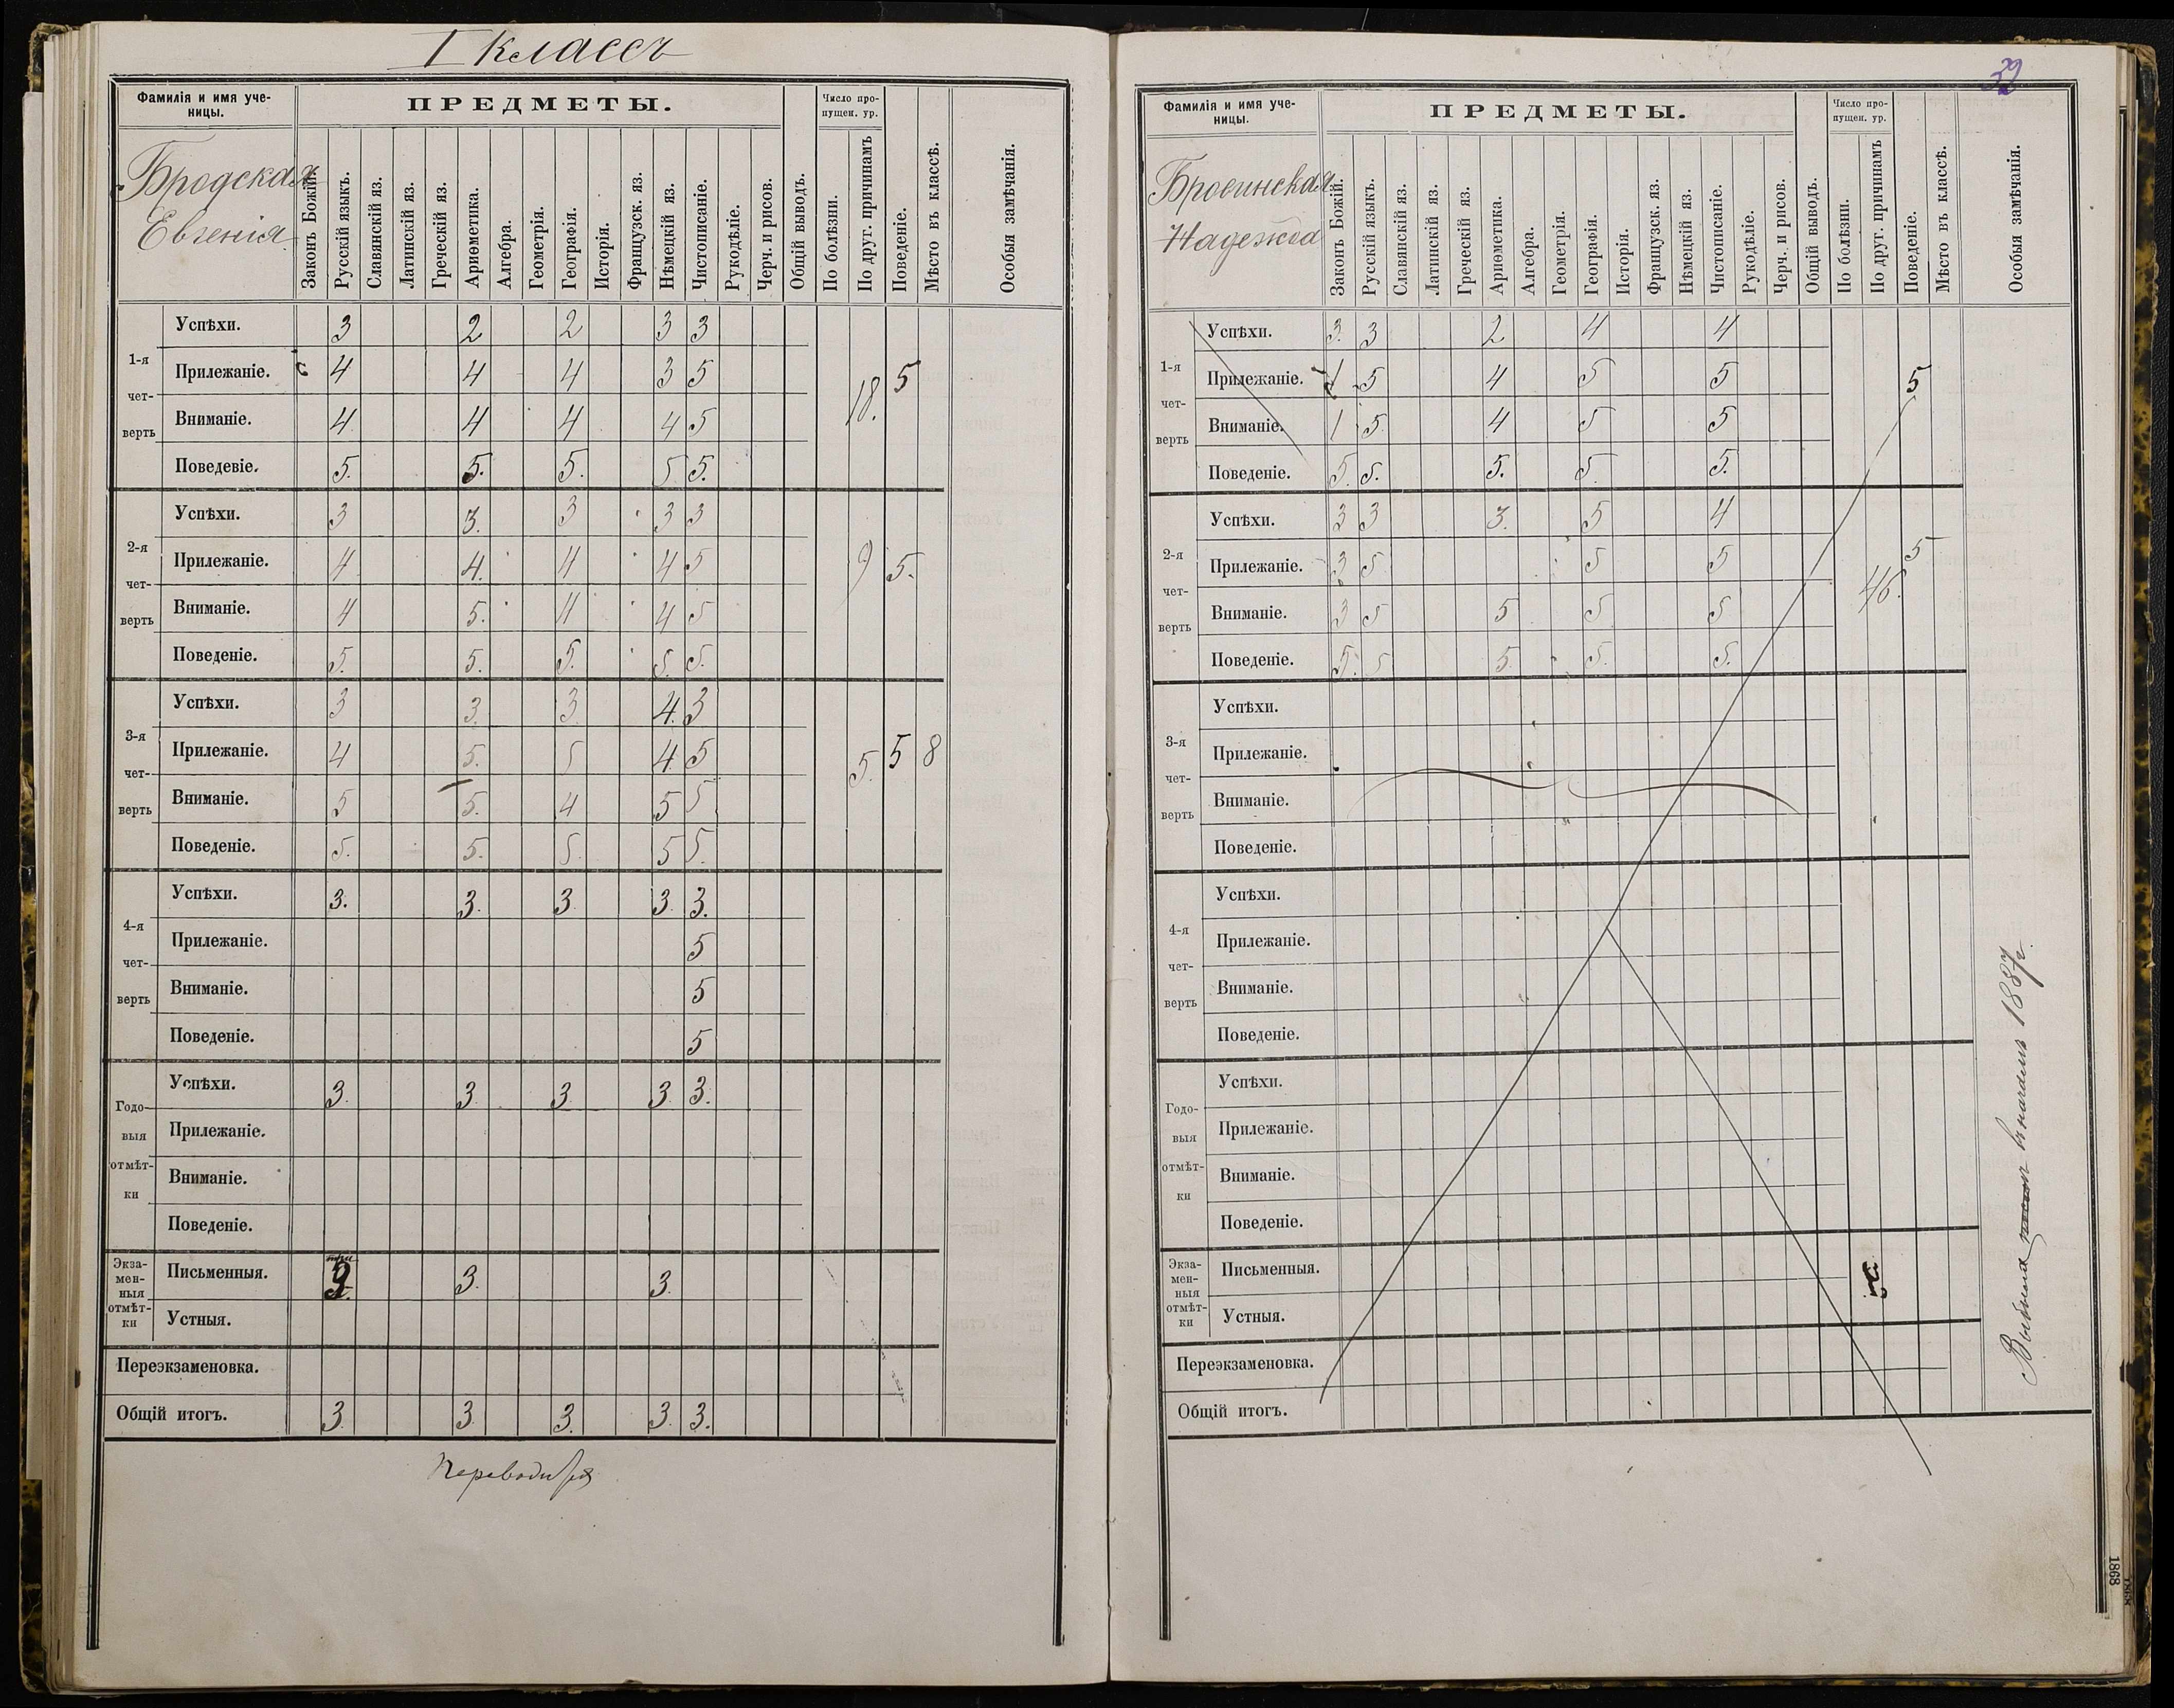 I классъ
Фамилія и имя уче-
ницы.
ПРЕДМЕТЫ.
Число про-
пущен. ур.
Бродская
Евгенія
Законъ Божій.
Русскій языкъ.
Славянскій яз.
Латинскій яз.
Греческій яз.
Ариѳметика.
Алгебра.
Геометрія.
Географія.
Исторія.
Французск. яз.
Нѣмецкій яз.
Чистописаніе.
Рукодѣліе.
Черч. и рисов.
Общій выводъ.
По болѣзни.
По друг. причинамъ
Поведеніе.
Мѣсто въ классѣ.
Особыя замѣчанія.
1-я
чет-
верть
Успѣхи. 3 2 2 3 3
Прилежаніе. 4 4 4 3 5
Вниманіе. 4 4 4 4 5
Поведевіе. 5. 5. 5. 5 5.
18. 5
2-я
чет-
верть
Успѣхи. 3 3. 3 3 3
Прилежаніе. 4 4. 4 4 5
Вниманіе. 4 5. 4 4 5
Поведеніе. 5. 5. 5. 5. 5.
9 5.
3-я
чет-
верть
Успѣхи. 3 3. 3 4. 3
Прилежаніе. 4 5. 5 4 5
Вниманіе. 5 5. 4 5 5
Поведеніе. 5. 5. 5. 5 5.
5. 5 8
4-я
чет-
верть
Успѣхи. 3. 3. 3 3 3.
Прилежаніе. 5
Вниманіе. 5
Поведеніе. 5
Годо-
выя
отмѣт-
ки
Успѣхи. 3. 3 3 3 3.
Прилежаніе.
Вниманіе.
Поведеніе.
Экза-
мен-
ныя
отмѣт-
ки
три
Письменныя. 3. 3. 3.
Устныя.
Переэкзаменовка.
Общій итогъ. 3. 3. 3. 3. 3.
39
Фамилія и имя уче-
ницы.
ПРЕДМЕТЫ.
Число про-
пущен. ур.
Надежда
Законъ Божій.
Русскій языкъ.
Славянскій яз.
Латинскій яз.
Греческій яз.
Ариѳметика.
Алгебра.
Геометрія.
Географія.
Исторія.
Французск. яз.
Нѣмецкій яз.
Чистописаніе.
Рукодѣліе.
Черч. и рисов.
Общій выводъ.
По болѣзни.
По друг. причинамъ
Поведеніе.
Мѣсто въ классѣ.
Особыя замѣчанія.
1-я
чет-
верть
Успѣхи. 3. 3 2 4 4
Прилежаніе. 1 5 4 5 5
Вниманіе. 1 5 4 5 5
Поведеніе. 5. 5. 5. 5. 5.
5
2-я
чет-
верть
Успѣхи. 3 3 3. 5 4
Прилежаніе. 3 5 5 5
Вниманіе. 3 5 5 5 5
Поведеніе. 5. 5 5. 5. 5.
46. 5
3-я
чет-
верть
Успѣхи.
Прилежаніе.
Вниманіе.
Поведеніе.
4-я
чет-
верть
Успѣхи.
Прилежаніе.
Вниманіе.
Поведеніе.
Годо-
выя
отмѣт-
ки
Успѣхи.
Прилежаніе.
Вниманіе.
Поведеніе.
Экза-
мен-
ныя
отмѣт-
ки
Письменныя.
Устныя.
Переэкзаменовка.
Общій итогъ.
1887г.
1868